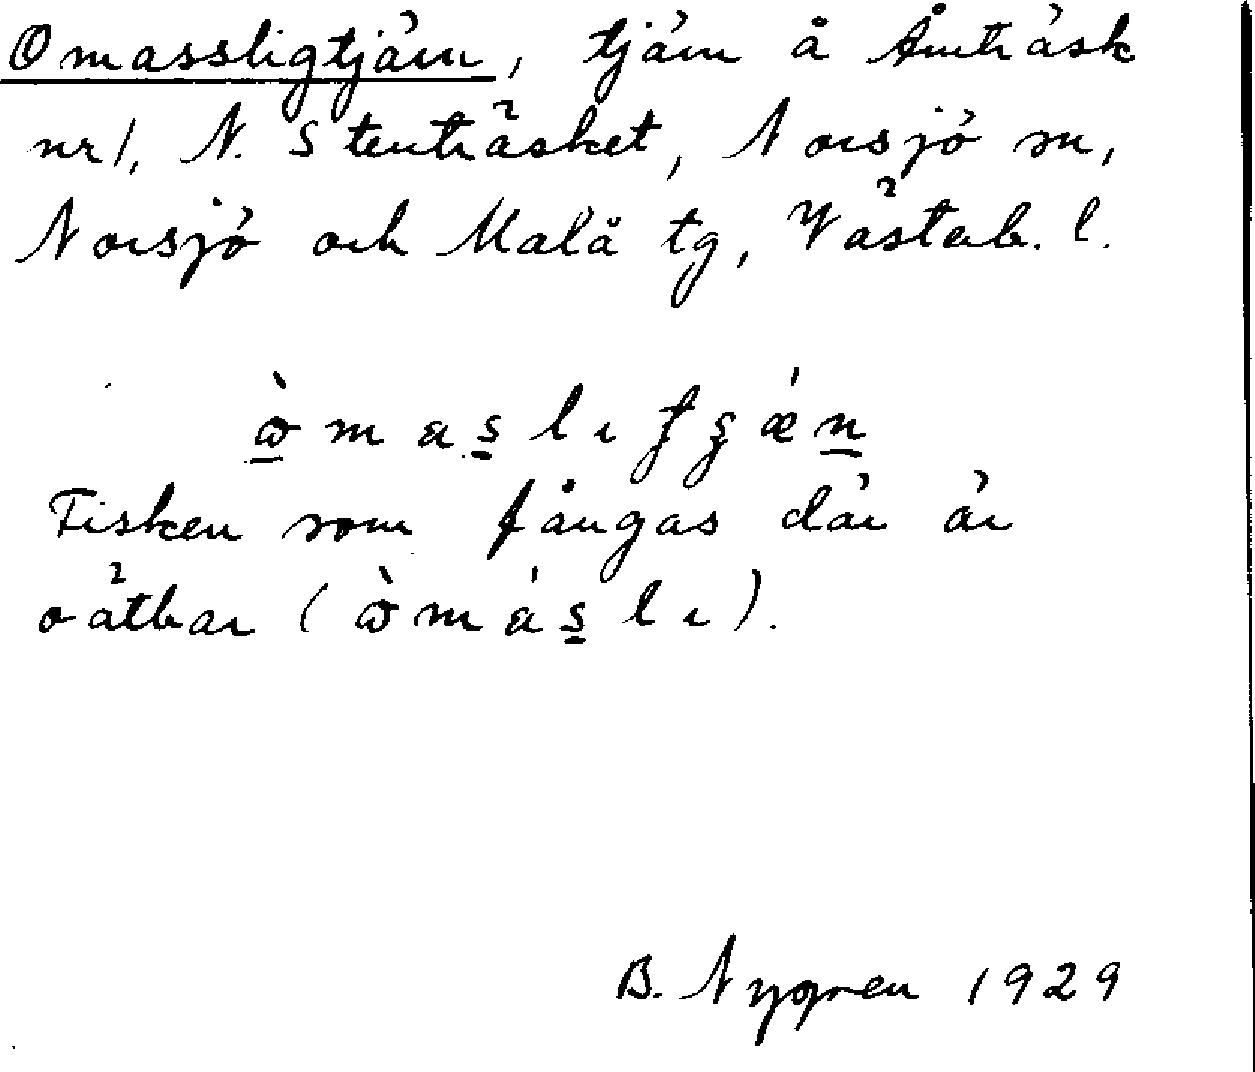 Omassligtjärn, tjärn å Åmträsk
nr 1, N. Stenträsket, Norsjö sn,
Norsjö och Malå tg, Västerb. l.
Fisken som fångas där är
oätbar
B. Nygren 1929